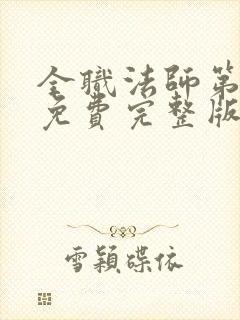 全職法師第
免費完整版
雪穎碟依